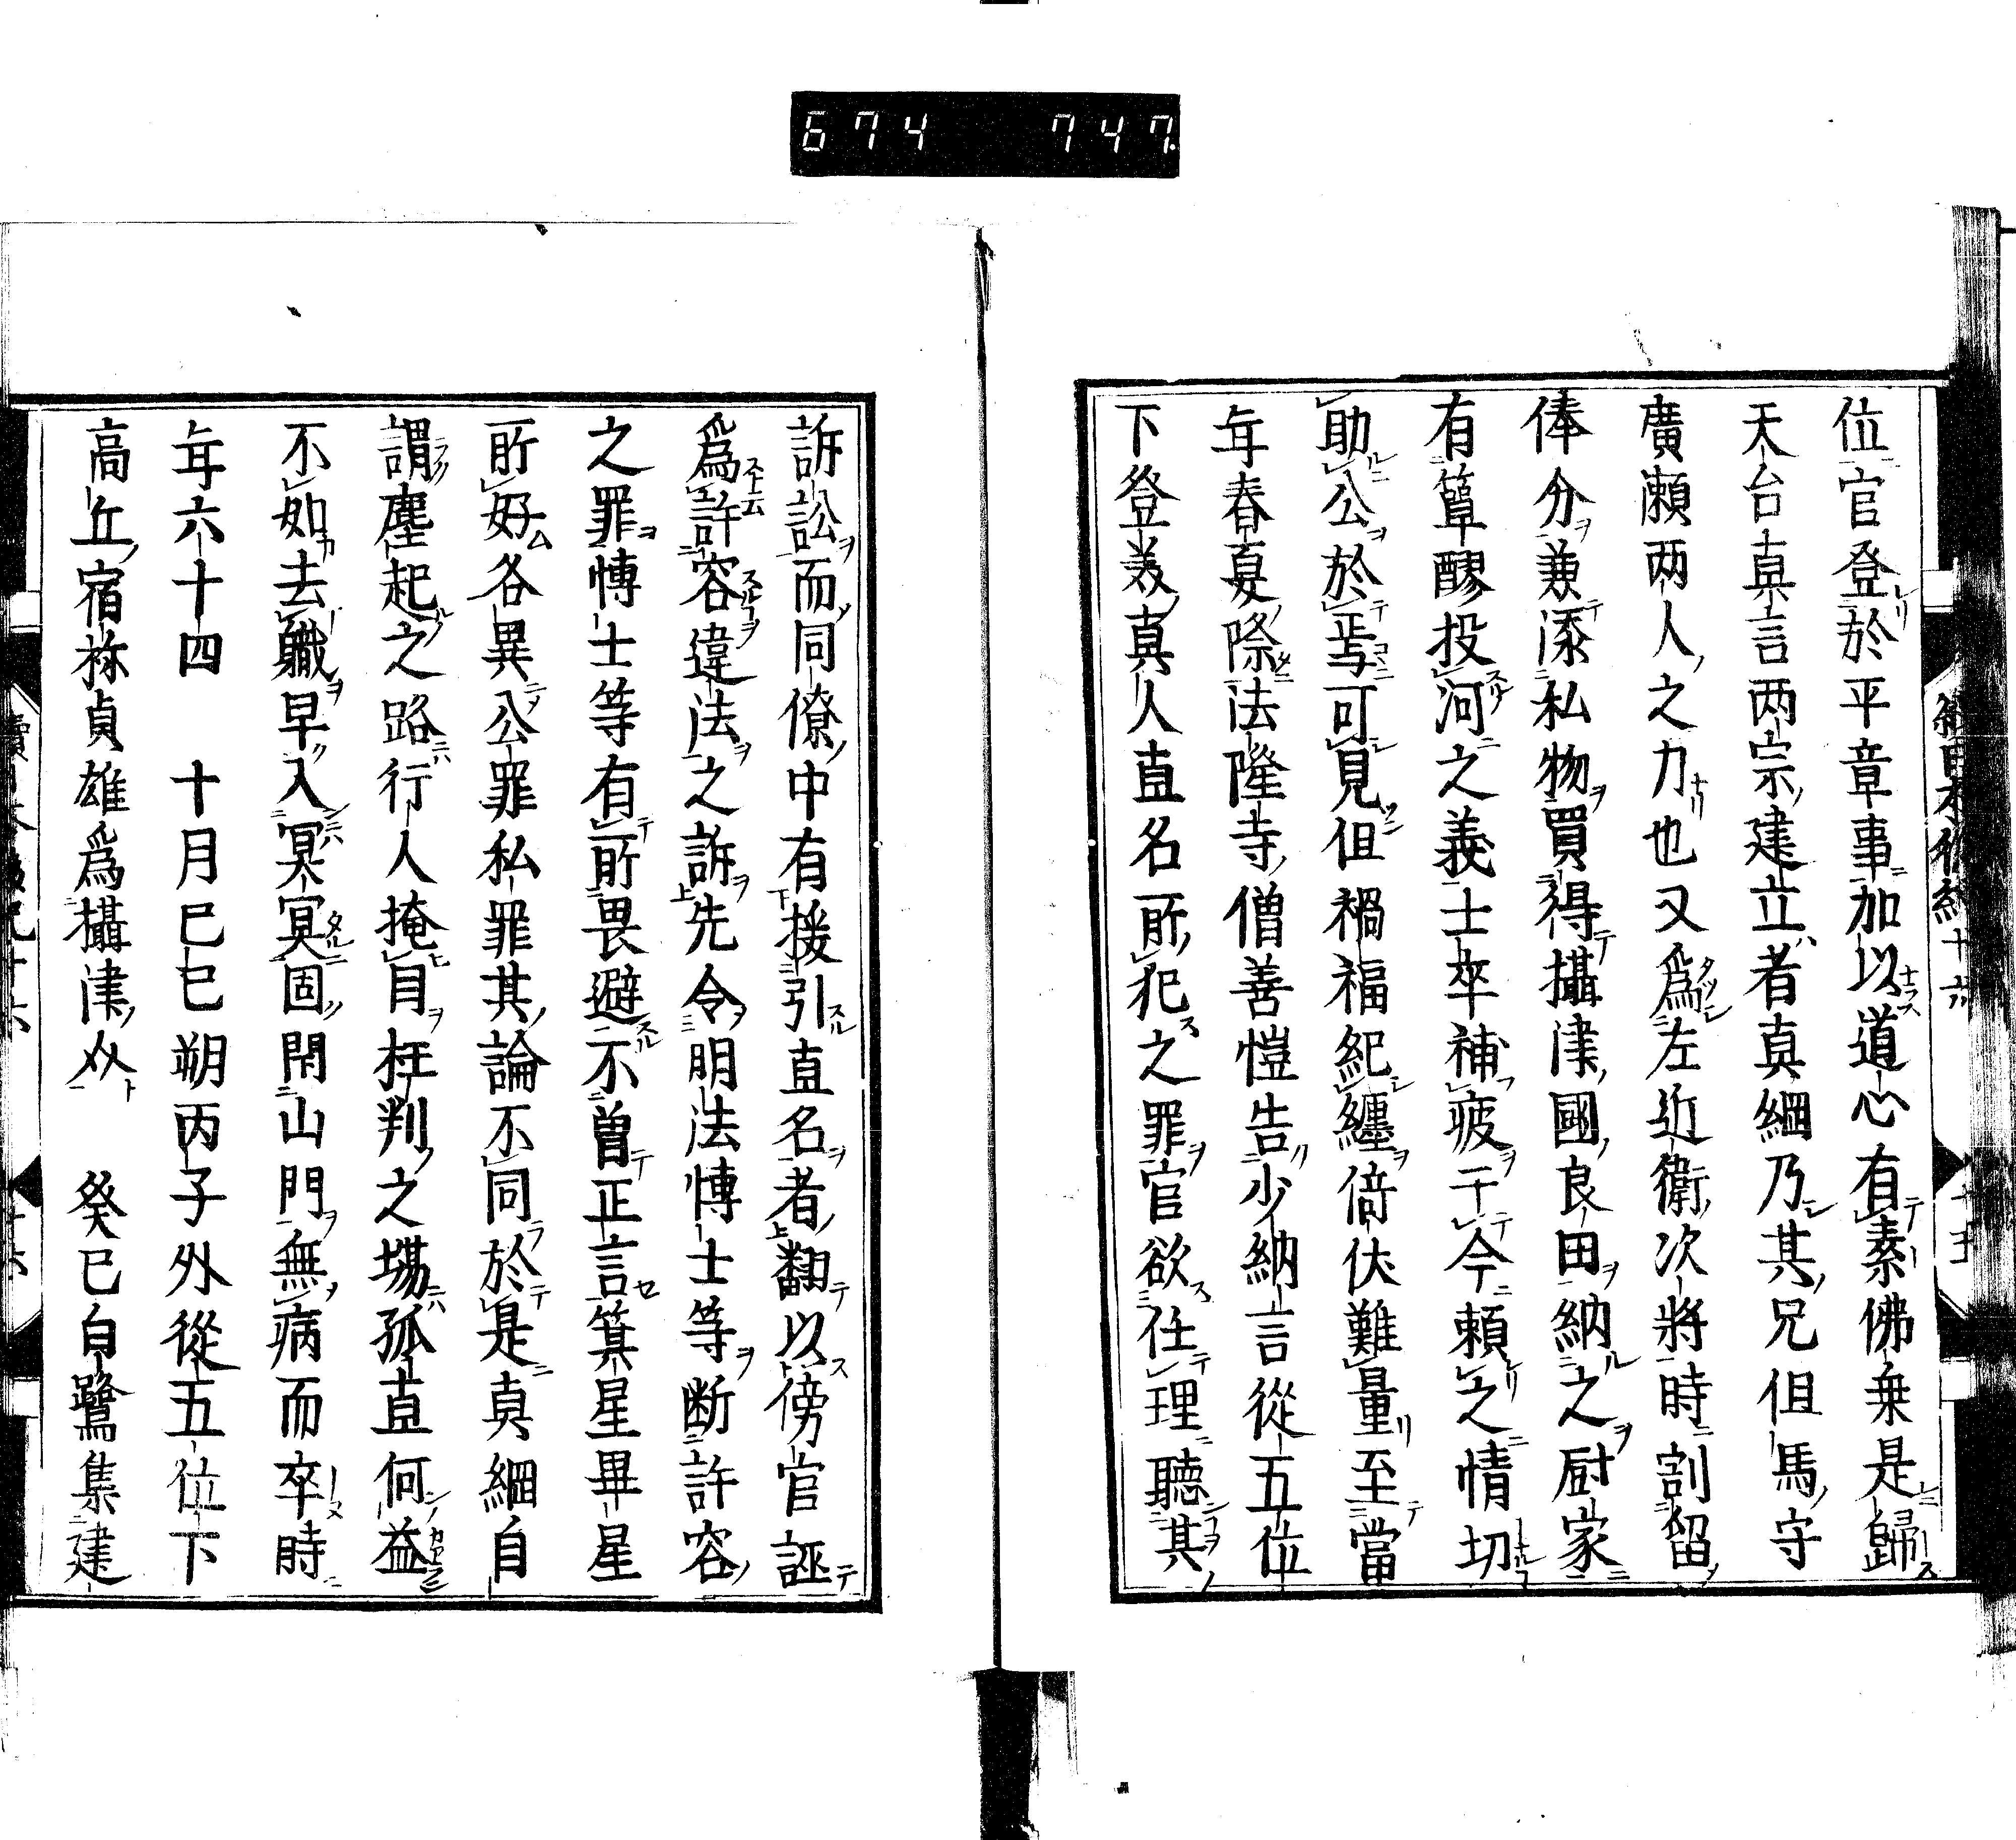 674 747
位官登於平章事加以道心有素佛乗是歸
天台真言两宗建立者真綱乃其兄但馬守
廣瀬两人之力也又爲左近衛次將時割留
俸分兼添私物買得攝津國良田納之厨家
有簞醪投河之義士卒補疲于今頼之情切
助公於焉可見但禍福糺纏倚伏難量至當
年春夏際法隆寺僧善愷告少納言從五位
下登美真人直名所犯之罪官欲任理聽其
訴訟而同僚中有援引直名者翻以傍官誣
爲許容違法之訴先令明法博士等断許容
之罪博士等有所畏避不曽正言箕星畢星
所好各異公罪私罪其論不同於是真綱自
謂塵起之路行人掩目枉判之塲孤直何益
不如去職早入冥冥固閇山門無病而卒時
年六十四 十月己巳朔丙子外從五位下
高丘宿祢貞雄爲攝津介 癸巳白鷺集建